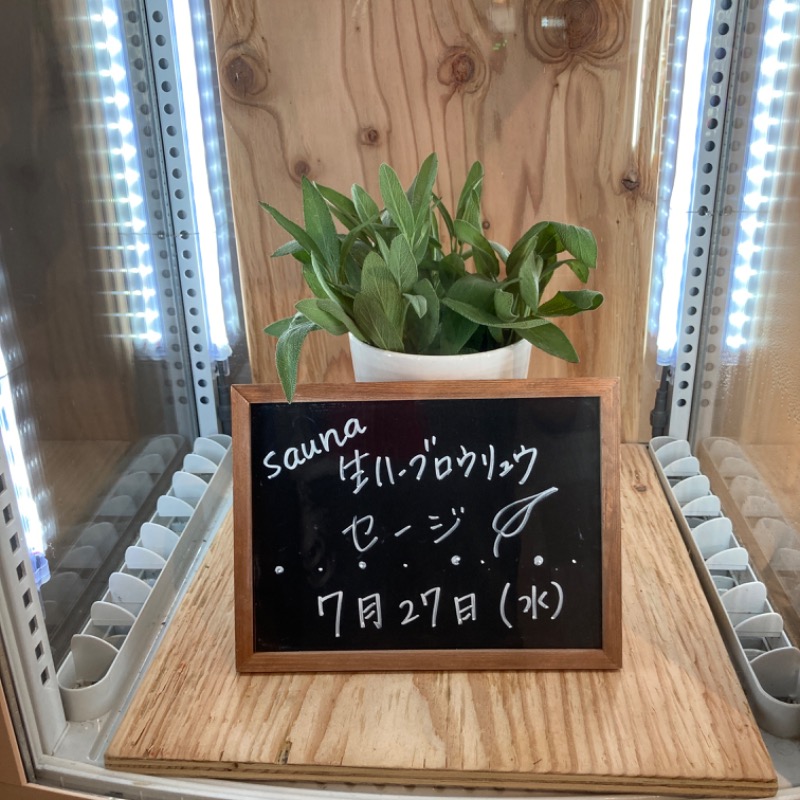 sauna
生ハーブロウリュウ
セージ
7月27日(水)